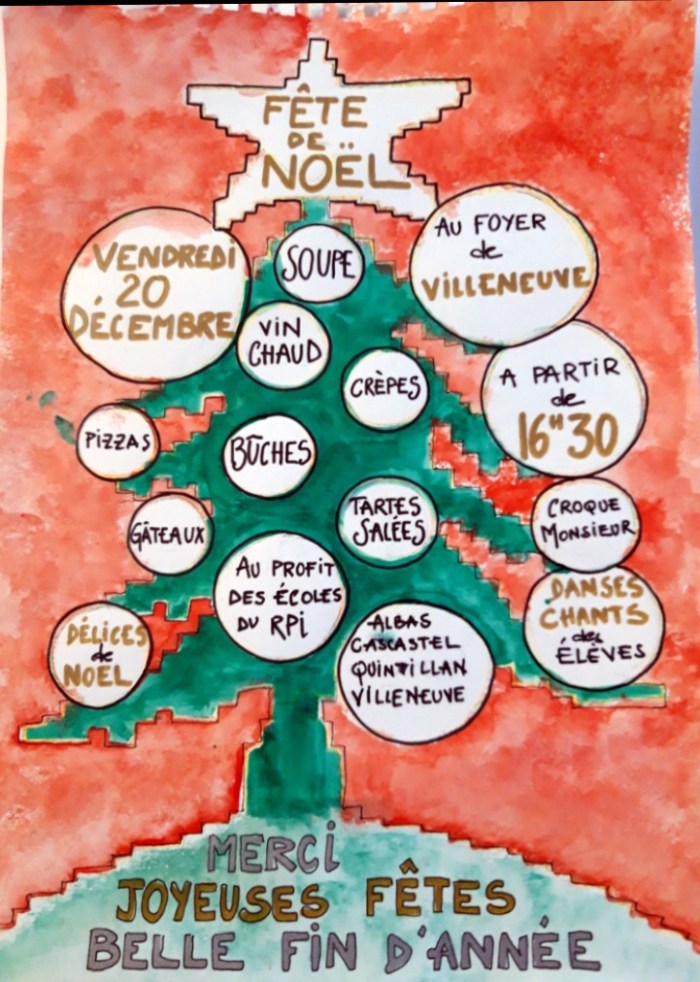 FÊTE
DE
NOËL
VENDREDI
20
DÉCEMBRE
SOUPE
AU FOYER
de
VILLENEUVE
VIN
CHAUD
CRÈPES
A PARTIR
de
16H30
PIZZAS
BÛCHES
GÂTEAUX
TARTES
SALÉES
CROQUE
MONSIEUR
AU PROFIT
DES ÉCOLES
DU RPi
DANSES
CHANTS
des
ÉLÈVES
DÉLICES
de
NOËL
ALBAS
CASCASTEL
QUINTILLAN
VILLENEUVE
MERCI
JOYEUSES FÊTES
BELLE FIN D'ANNÉE